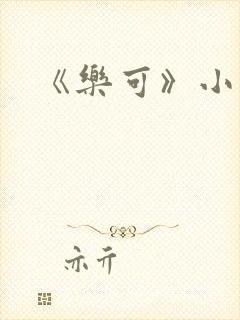 《樂可》小
亦亓